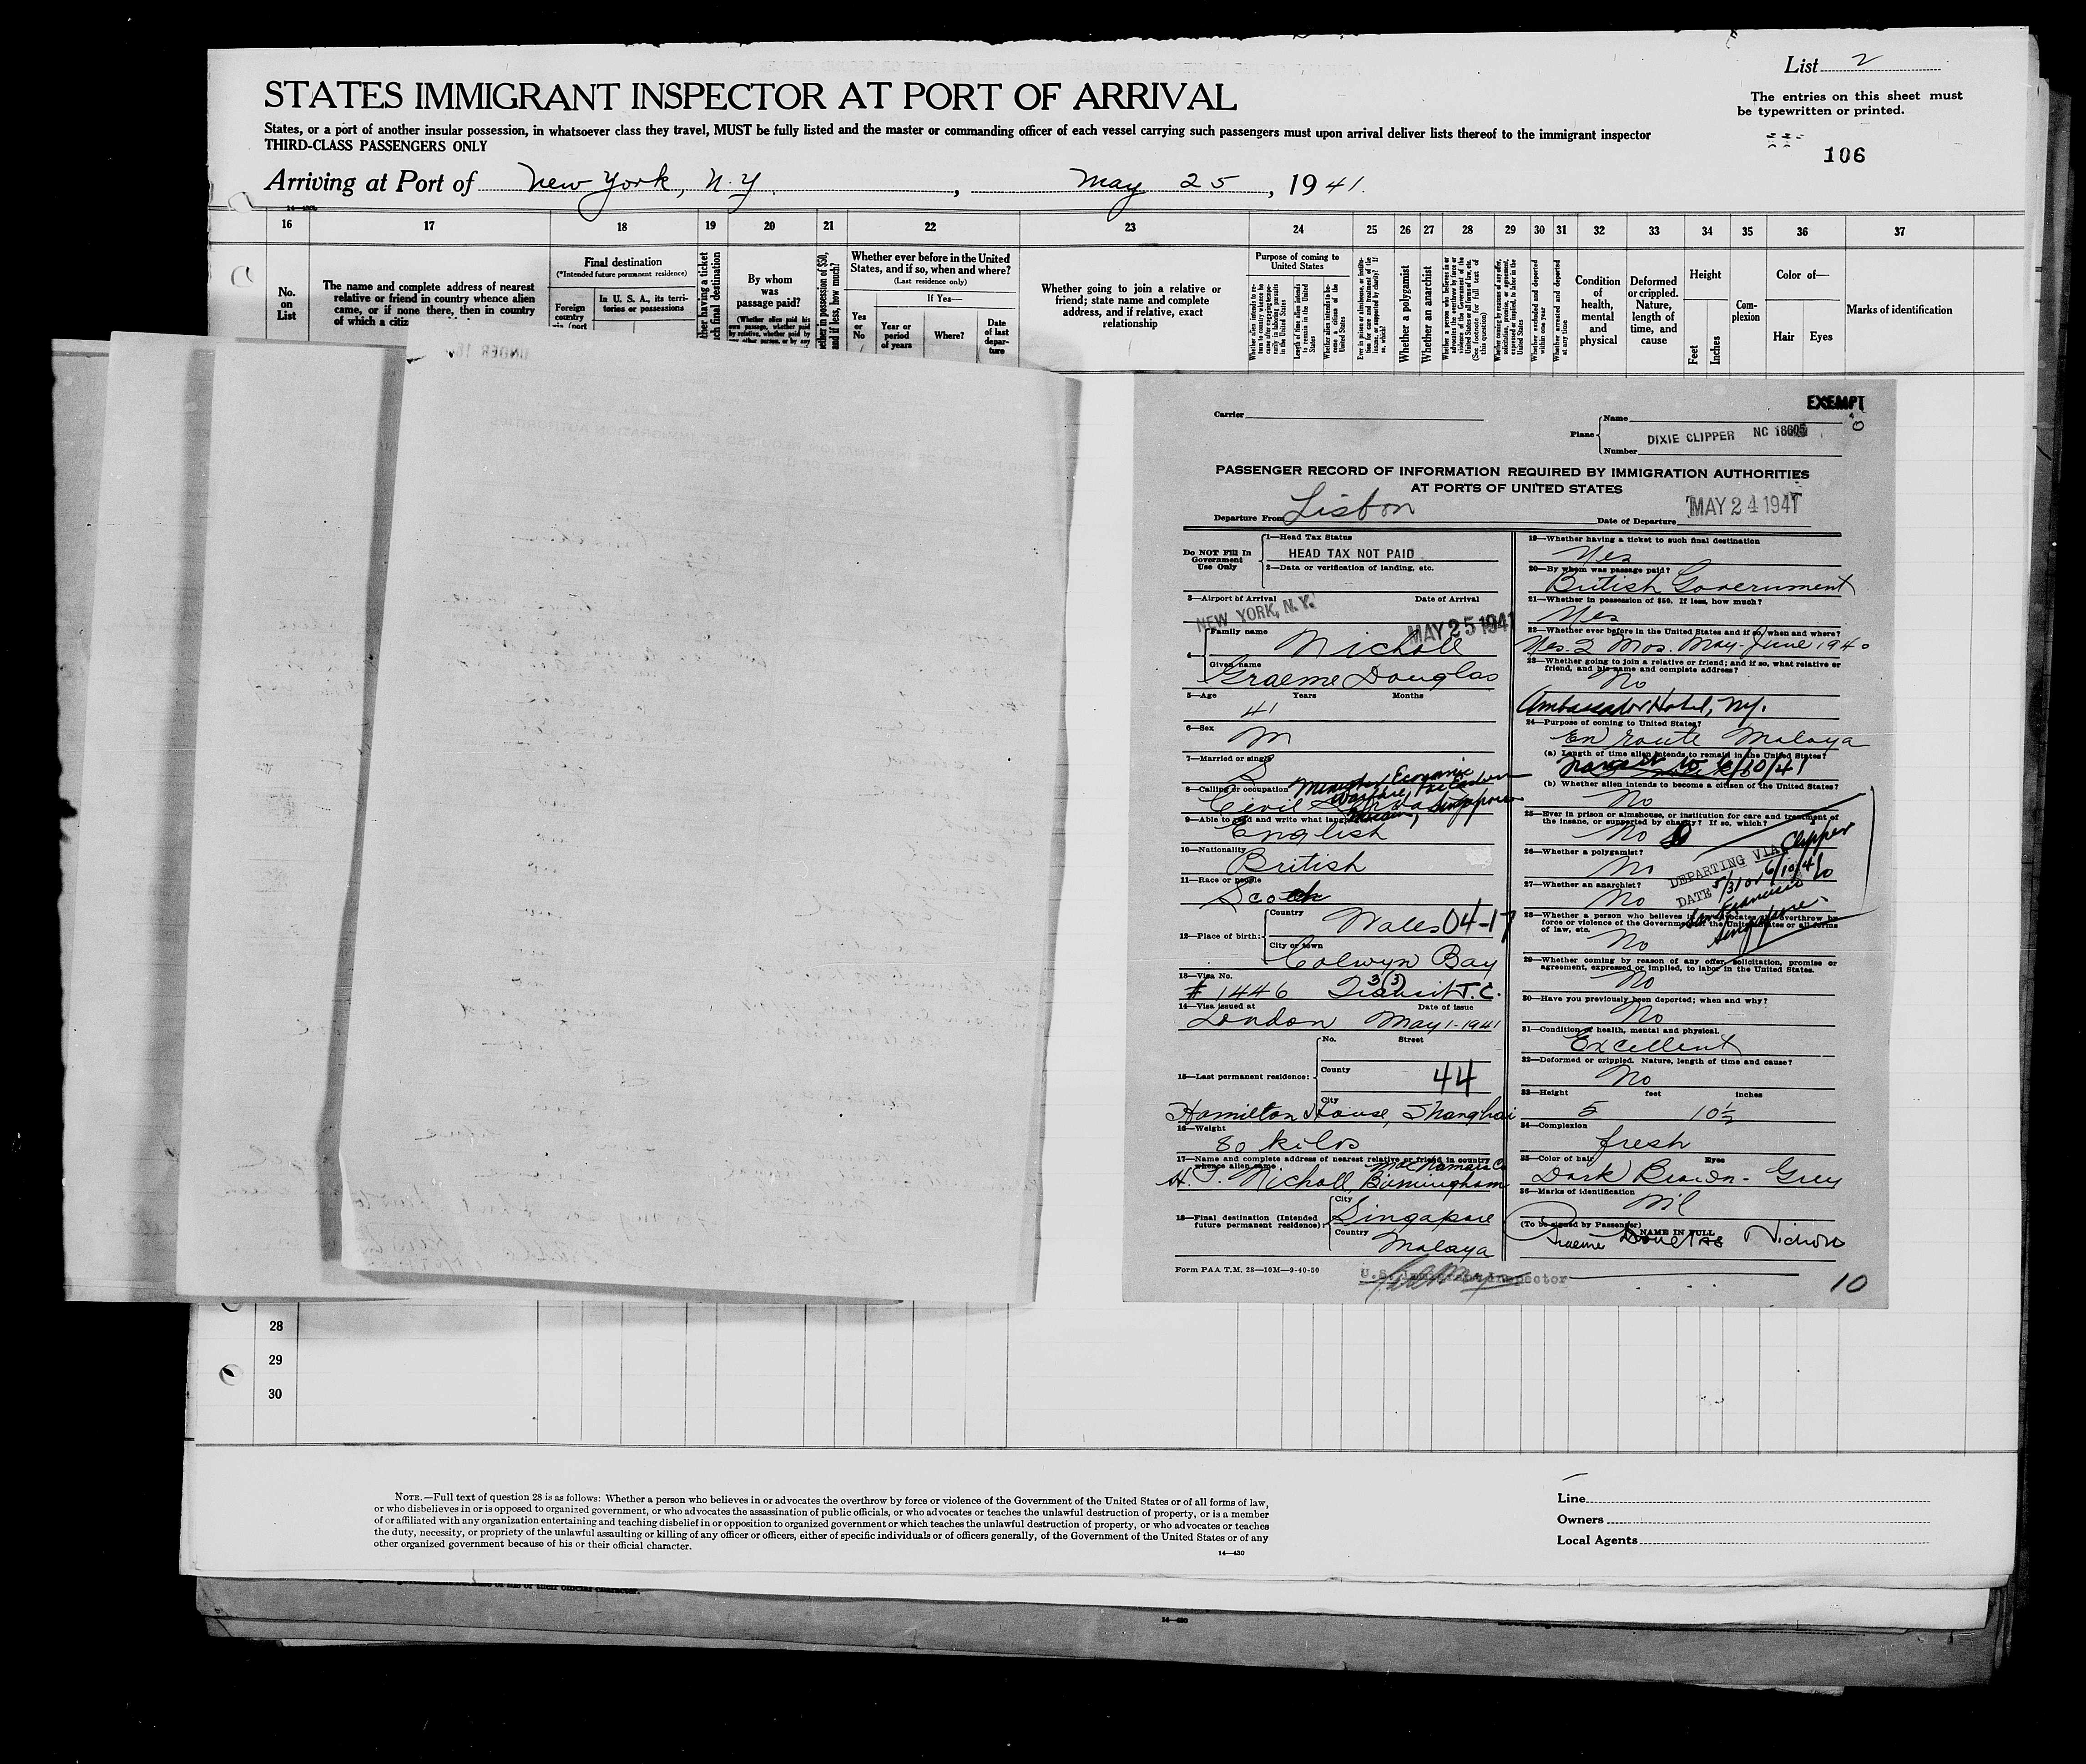 List 2
STATES IMMIGRANT INSPECTOR AT PORT OF ARRIVAL
The entries on this sheet must
be typewritten or printed.
States, or a port of another insular possession, in whatsoever class they travel, MUST be fully listed and the master or commanding officer of each vessel carrying such passengers must upon arrival deliver lists thereof to the immigrant inspector
THIRD-CLASS PASSENGERS ONLY
106
Arriving at Port of New York, N.Y. , May 25 , 1941.
16 17 18 19 20 21 22 23 24 25 26 27 28 29 30 31 32 33 34 35 36 37
No.
on
List
The name and complete address of nearest
relative or friend in country whence alien
came, or if none there, then in country
of which a citiz
Final destination
(*Intended future permanent residence)
Foreign
country
via (port
In U. S. A., its terri-
tories or possessions
By whom
was
passage paid?
(Whether alien paid his
own passage, whether paid
by relative, whether paid by
any other person, or by any
Whether ever before in the United
States, and if so, when and where?
(Last residence only)
If Yes—
Yes
or
No
Year or
period
of years
Where?
Date
of last
depar-
ture
Whether going to join a relative or
friend; state name and complete
address, and if relative, exact
relationship
Purpose of coming to
United States
Whether a polygamist
Whether an anarchist
Condition
of
health,
mental
and
physical
Deformed
or crippled.
Nature,
length of
time, and
cause
Height
Feet
Inches
Com-
plexion
Color of—
Hair Eyes
Marks of identification
EXEMPT
Carrier
Plane
Name
DIXIE CLIPPER NC 18605
Number
PASSENGER RECORD OF INFORMATION REQUIRED BY IMMIGRATION AUTHORITIES
AT PORTS OF UNITED STATES
Departure From Lisbon Date of Departure MAY 24 1941
Do NOT Fill In
Government
Use Only
1—Head Tax Status
HEAD TAX NOT PAID
2—Data or verification of landing, etc.
3—Airport of Arrival Date of Arrival
NEW YORK, N.Y. MAY 25 1941
4—
Family name
Nicholl
Given name
Graeme Douglas
5—Age Years Months
41
6—Sex
M
7—Married or single
S
8—Calling or occupation Ministry Economic
Warfare, Far Eastern
Civil Singapore
9—Able to read and write what lang
English
10—Nationality
British
11—Race or people
Scotch
12—Place of birth:
Country
Wales 04-17
City or town
Colwyn Bay
13—Visa No.
# 1446 3(3) Transit T.C.
14—Visa issued at Date of issue
London May 1-1941
15—Last permanent residence:
No. Street
County
44
City
Hamilton House, Shanghai
16—Weight
80 kilos
17—Name and complete address of nearest relative or friend in country
whence alien came
H. J. Nicholl, Birmingham
18—Final destination (Intended
future permanent residence):
City
Singapore
Country
Malaya
Form PAA T.M. 28—10M—9-40-50
U.S. Immigrant Inspector
19—Whether having a ticket to such final destination
Yes
20—By whom was passage paid?
British Government
21—Whether in possession of $50. If less, how much?
Yes
22—Whether ever before in the United States and if so, when and where?
Yes. 2 Mos. May-June 1940
23—Whether going to join a relative or friend; and if so, what relative or
friend, and his name and complete address?
No
Ambassador Hotel, NY.
24—Purpose of coming to United States?
En route Malaya
(a) Length of time alien intends to remain in the United States?
Transit to 6/10/41
(b) Whether alien intends to become a citizen of the United States?
No
25—Ever in prison or almshouse, or institution for care and treatment of
the insane, or supported by charity? If so, which?
No
26—Whether a polygamist?
No
DEPARTING VIA Clipper
DATE 5/31 or 6/10/41
San Francisco to
Singapore
27—Whether an anarchist?
No
28—Whether a person who believes in or advocates the overthrow by
force or violence of the Government of the United States or all forms
of law, etc.
No
29—Whether coming by reason of any offer, solicitation, promise or
agreement, expressed or implied, to labor in the United States.
No
30—Have you previously been deported; when and why?
No
31—Condition of health, mental and physical.
Excellent
32—Deformed or crippled. Nature, length of time and cause?
No
33—Height feet inches
5 10½
34—Complexion
fresh
35—Color of hair Eyes
Dark Brown - Grey
36—Marks of identification
Nil
(To be signed by Passenger) NAME IN FULL
Graeme Douglas Nicholl
10
28
29
30
NOTE.—Full text of question 28 is as follows: Whether a person who believes in or advocates the overthrow by force or violence of the Government of the United States or of all forms of law,
or who disbelieves in or is opposed to organized government, or who advocates the assassination of public officials, or who advocates or teaches the unlawful destruction of property, or is a member
of or affiliated with any organization entertaining and teaching disbelief in or opposition to organized government or which teaches the unlawful destruction of property, or who advocates or teaches
the duty, necessity, or propriety of the unlawful assaulting or killing of any officer or officers, either of specific individuals or of officers generally, of the Government of the United States or of any
other organized government because of his or their official character.
14—430
Line
Owners
Local Agents
14—430